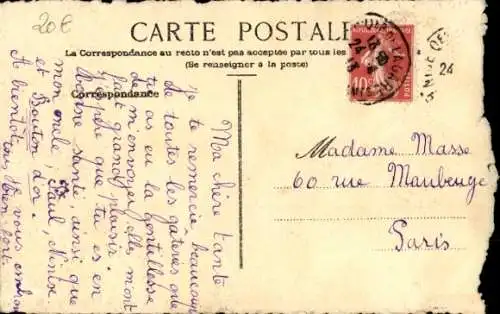 20€
CARTE POSTALE
La Correspondance au recto n'est pas acceptée par tous les
(Se renseigner à la poste)
Correspondance
10c
POSTES
24
Ma chère tante
Je te remercie beaucoup
de toutes les gateries que
tu as eu la gentillesse
de m'envoyer, elles m'ont
fait grand plaisir.
J'espère que tu es en
bonne santé, ainsi que
mon oncle, Paul, Ninise
et Bouton d'or.
A bientôt, je vous embra
tous bien fort.
Madame Masse
60 rue Maubeuge
Paris